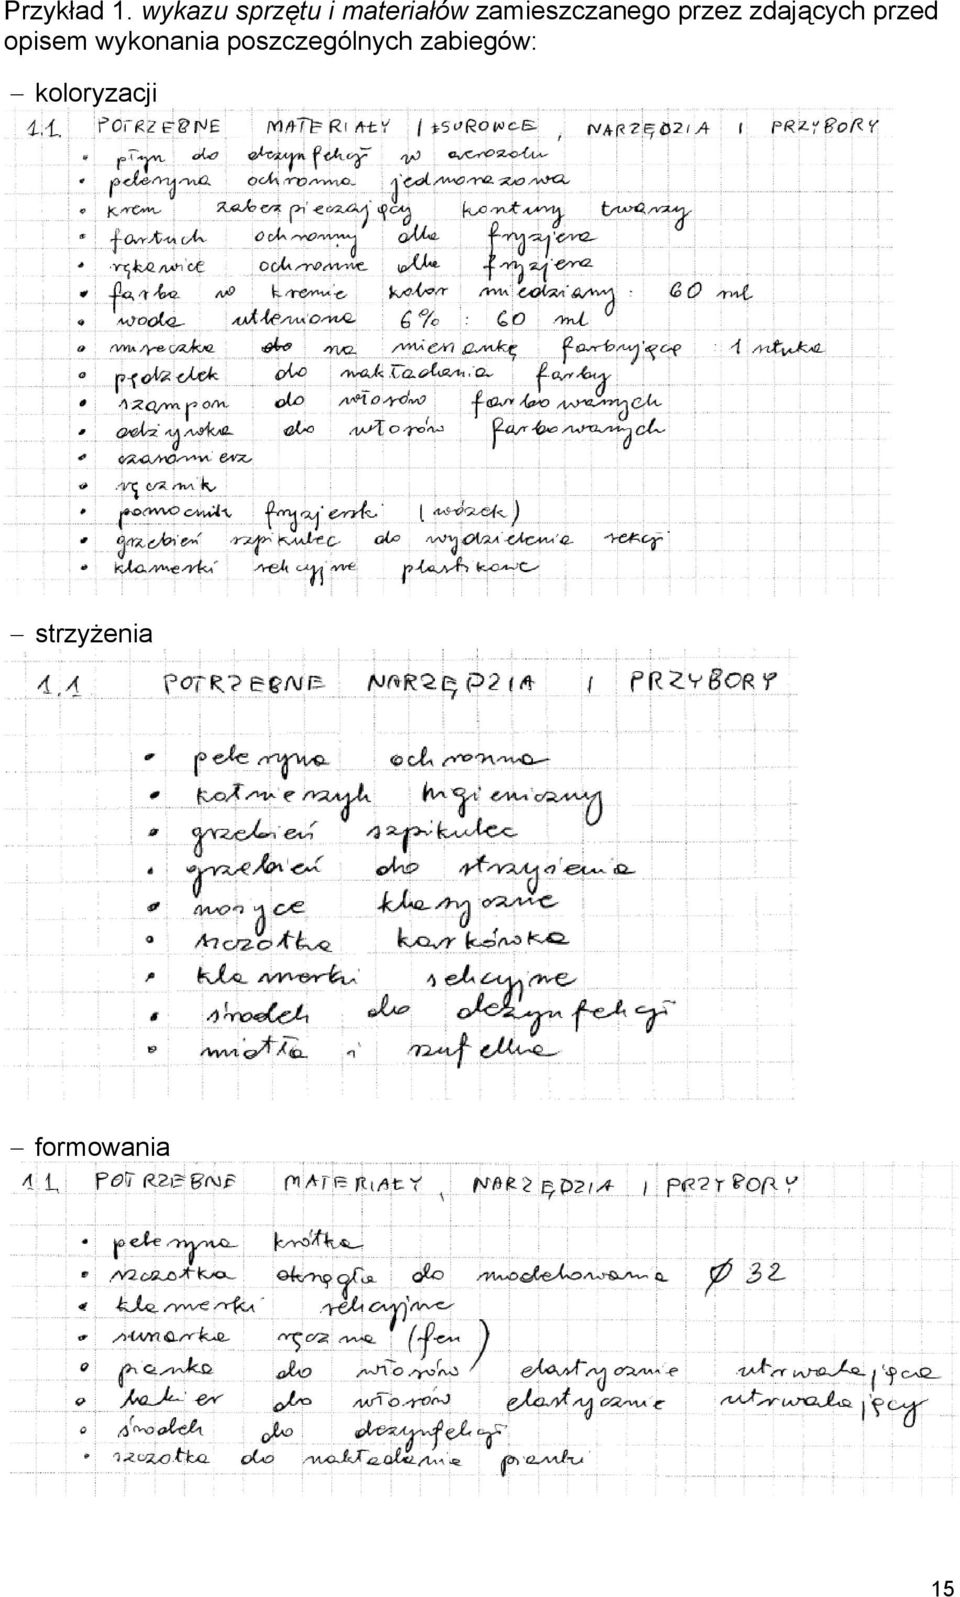 Przykład 1. wykazu sprzętu i materiałów zamieszczanego przez zdających przed
opisem wykonania poszczególnych zabiegów:
– koloryzacji
1.1. POTRZEBNE MATERIAŁY I SUROWCE, NARZĘDZIA I PRZYBORY
• płyn do dezynfekcji w aerozolu
• peleryna ochronna jednorazowa
• krem zabezpieczający kontury twarzy
• fartuch ochronny dla fryzjera
• rękawice ochronne dla fryzjera
• farba w kremie kolor miedziany : 60 ml
• woda utleniona 6% : 60 ml
• miseczka do na mieszankę farbującą : 1 sztuka
• pędzelek do nakładania farby
• szampon do włosów farbowanych
• odżywka do włosów farbowanych
• czasomierz
• ręcznik
• pomocnik fryzjerski (wózek)
• grzebień szpikulec do wydzielenia sekcji
• klamerki sekcyjne plastikowe
– strzyżenia
1.1 POTRZEBNE NARZĘDZIA I PRZYBORY
• peleryna ochronna
• kołnierzyk higieniczny
• grzebień szpikulec
• grzebień do strzyżenia
• nożyce klasyczne
• szczotka karkówka
• klamerki sekcyjne
• środek do dezynfekcji
• miotła i szufelka
– formowania
1.1. POTRZEBNE MATERIAŁY, NARZĘDZIA I PRZYBORY
• peleryna krótka
• szczotka okrągła do modelowania Ø 32
• klamerki sekcyjne
• suszarka ręczna (fen)
• pianka do włosów elastycznie utrwalająca
• lakier do włosów elastycznie utrwalający
• środek do dezynfekcji
• szczotka do nakładania pianki
15